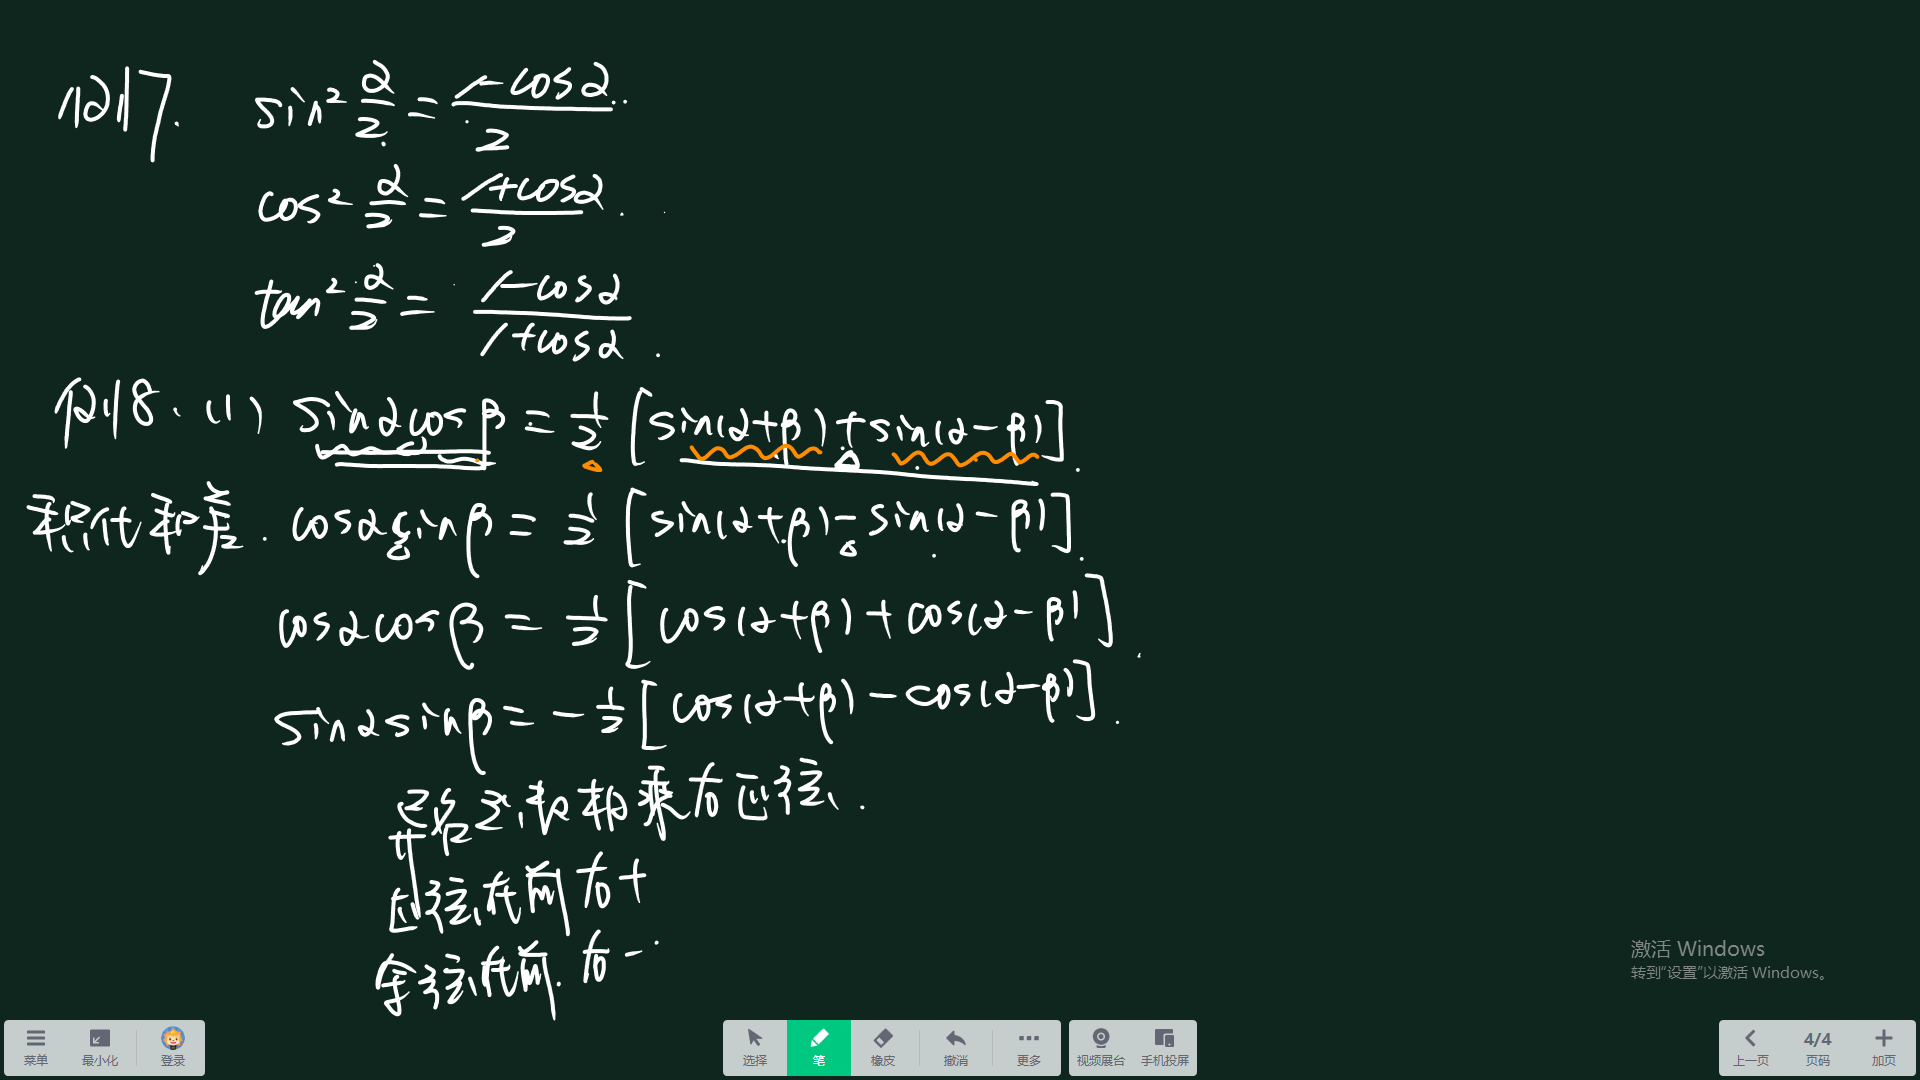 例7. sin² α/2 = (1-cosα)/2.
cos² α/2 = (1+cosα)/2.
tan² α/2 = (1-cosα)/(1+cosα).
例8.(1) sinαcosβ = 1/2 [sin(α+β)+sin(α-β)].
积化和差. cosαsinβ = 1/2 [sin(α+β)-sin(α-β)].
cosαcosβ = 1/2 [cos(α+β)+cos(α-β)].
sinαsinβ = -1/2 [cos(α+β)-cos(α-β)].
异名之积相乘右正弦.
正弦在前右+
余弦在前右-.
激活 Windows
转到“设置”以激活 Windows。
菜单 最小化 登录 选择 笔 橡皮 撤消 更多 视频展台 手机投屏 上一页 4/4 页码 加页